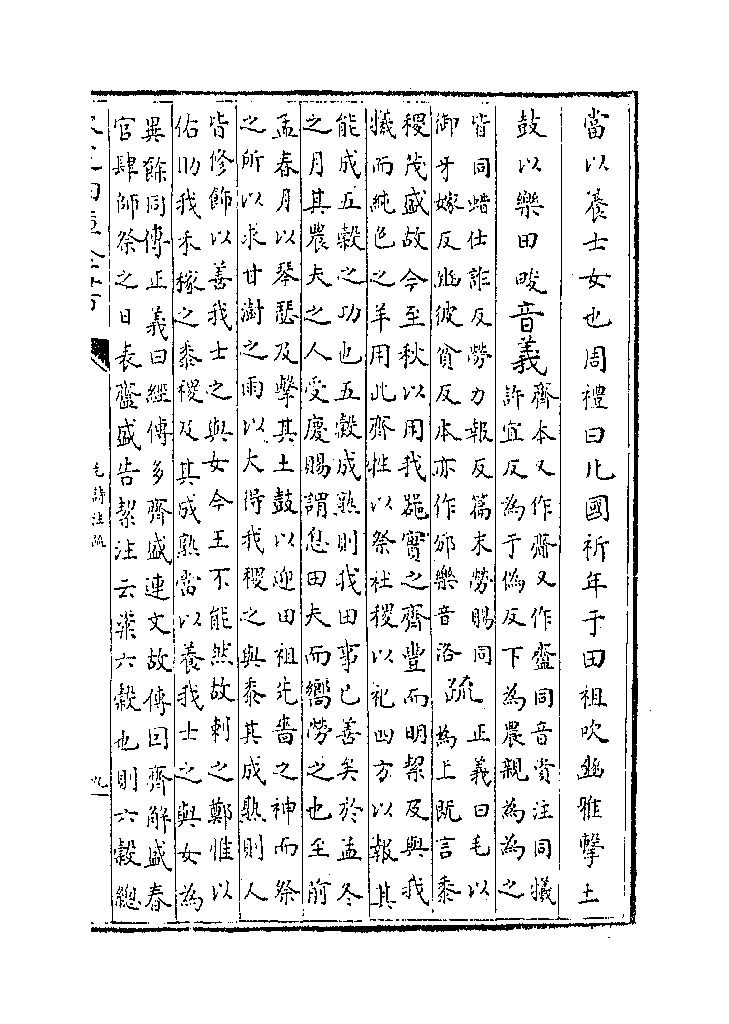 當以養士女也周禮曰凡國祈年于田祖吹豳雅擊土
鼓以樂田畯音義
齊本又作齋又作齍同音資注同犧
許宜反為于偽反下為農親為為之
皆同蜡仕詐反勞力報反篇末勞賜同
御牙嫁反豳彼貧反本亦作邠樂音洛
疏
正義曰毛以
為上既言黍
稷茂盛故今至秋以用我器實之齊豐而明絜及與我
犧而純色之羊用此齊牲以祭社稷以祀四方以報其
能成五穀之功也五穀成熟則我田事已善矣於孟冬
之月其農夫之人受慶賜謂息田夫而嚮勞之也至前
孟春月以琴瑟及擊其土鼓以迎田祖先嗇之神而祭
之所以求甘澍之雨以大得我稷之與黍其成熟則人
皆修飾以善我士之與女今王不能然故刺之鄭惟以
佑助我禾稼之黍稷及其成熟當以養我士之與女為
異餘同傳正義曰經傳多齊盛連文故傳因齊解盛春
官肆師祭之日表齍盛告絜注云粢六穀也則六穀總
毛詩注疏
九